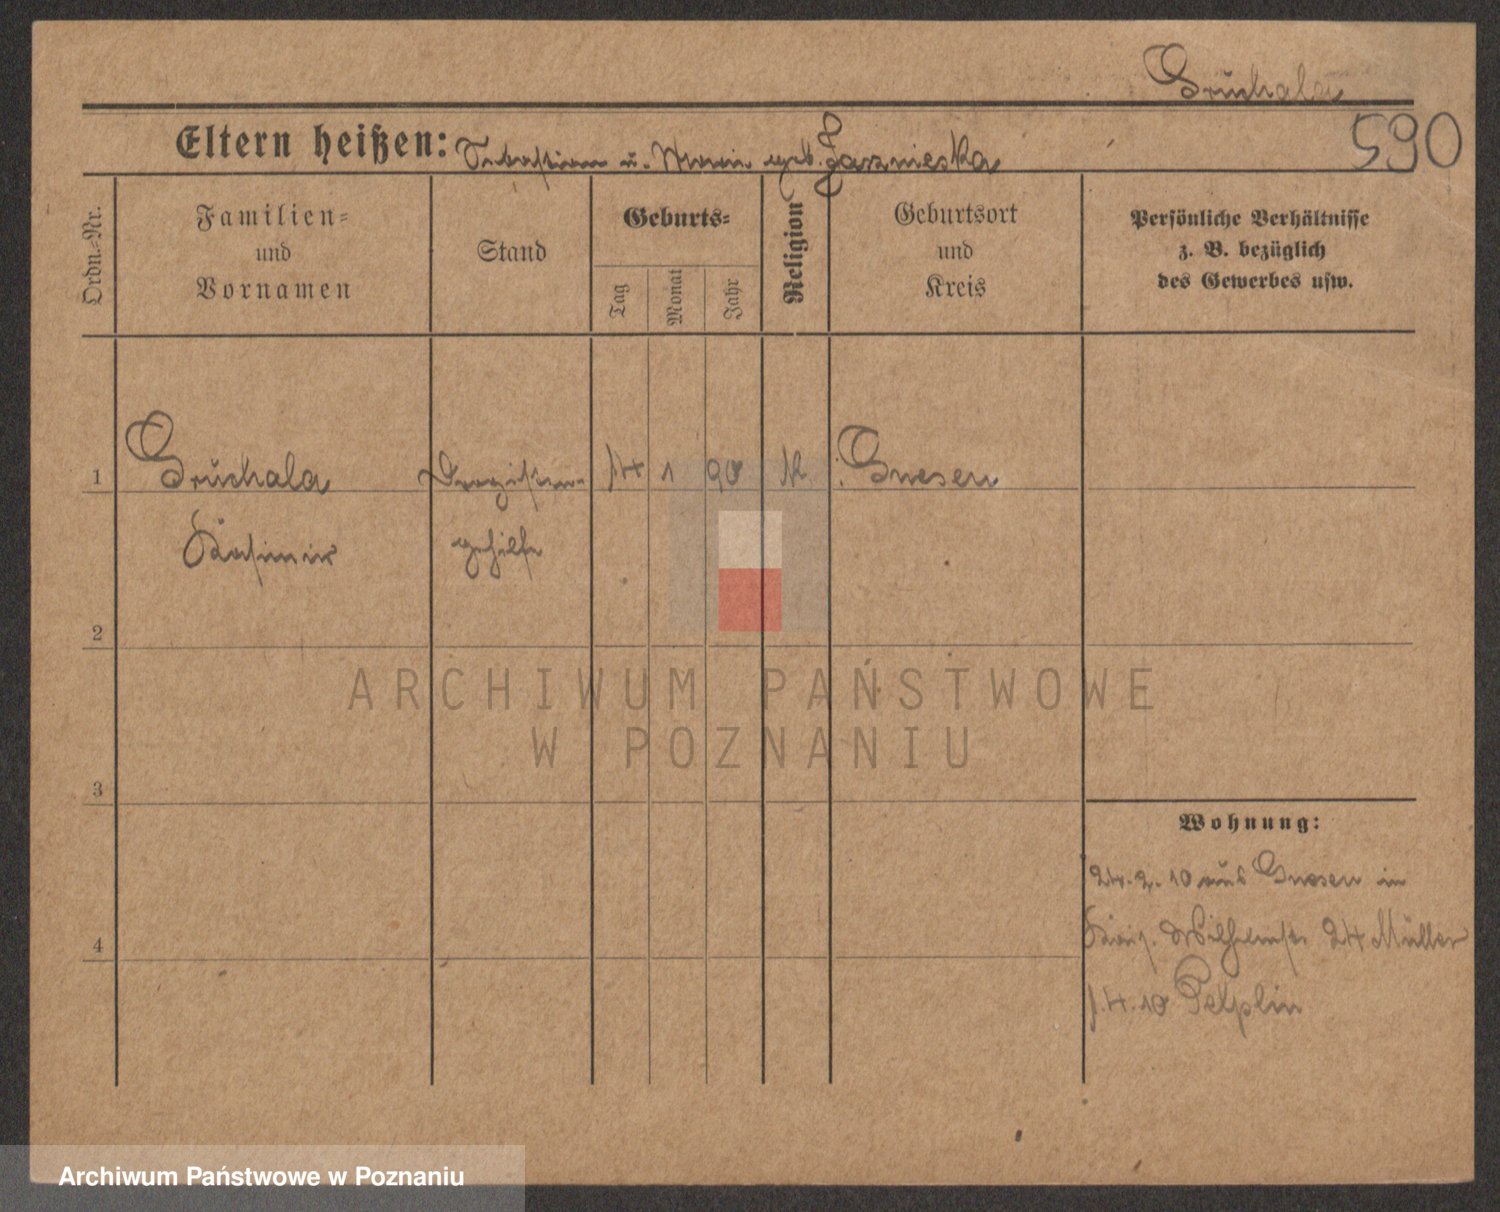 Gruchala
590
Eltern heißen: Sebastian u. Marie geb. Jasznieska
Ordn.-Nr.
Familien-
und
Vornamen
Stand
Geburts-
Tag
Monat
Jahr
Religion
Geburtsort
und
Kreis
Persönliche Verhältnisse
z. B. bezüglich
des Gewerbes usw.
1 Gruchala Drogisten- 14 1 90 K. Gnesen
Kasimir gehilfe
2
3
4
Wohnung:
24.2.10 aus Gnesen in
Kais. Wilhelmstr 24 Müller
1.4.10 Pelplin
ARCHIWUM PAŃSTWOWE
W POZNANIU
Archiwum Państwowe w Poznaniu